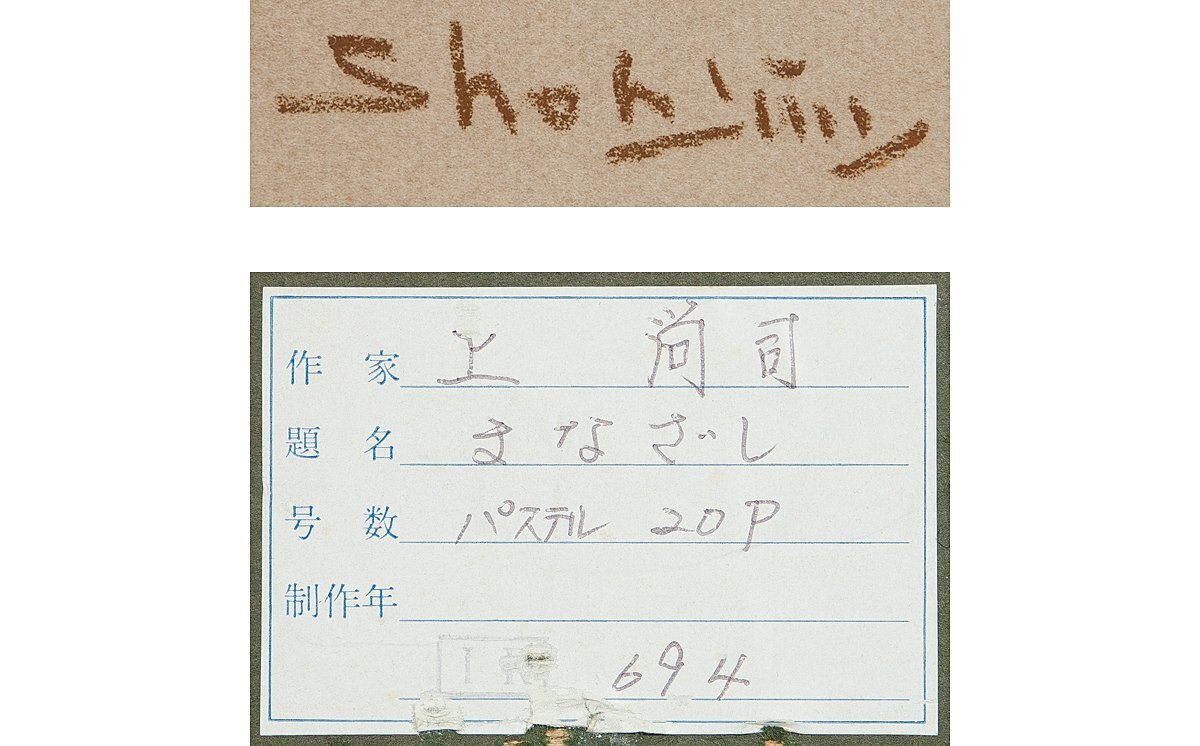 作家 上 尚司
題名 まなざし
号数 パステル 20P
制作年
694